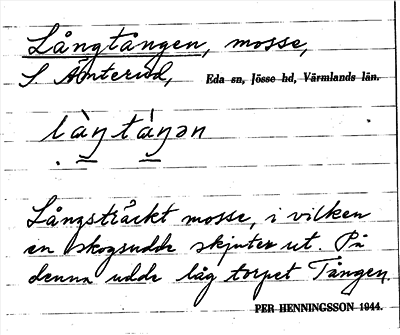 Långtången, mosse,
S Ämterud, Eda sn, Jösse hd, Värmlands län.
làŋtàŋən
Långsträckt mosse, i vilken
en skogsudde skjuter ut. På
denna udde låg torpet Tången.
PER HENNINGSSON 1944.